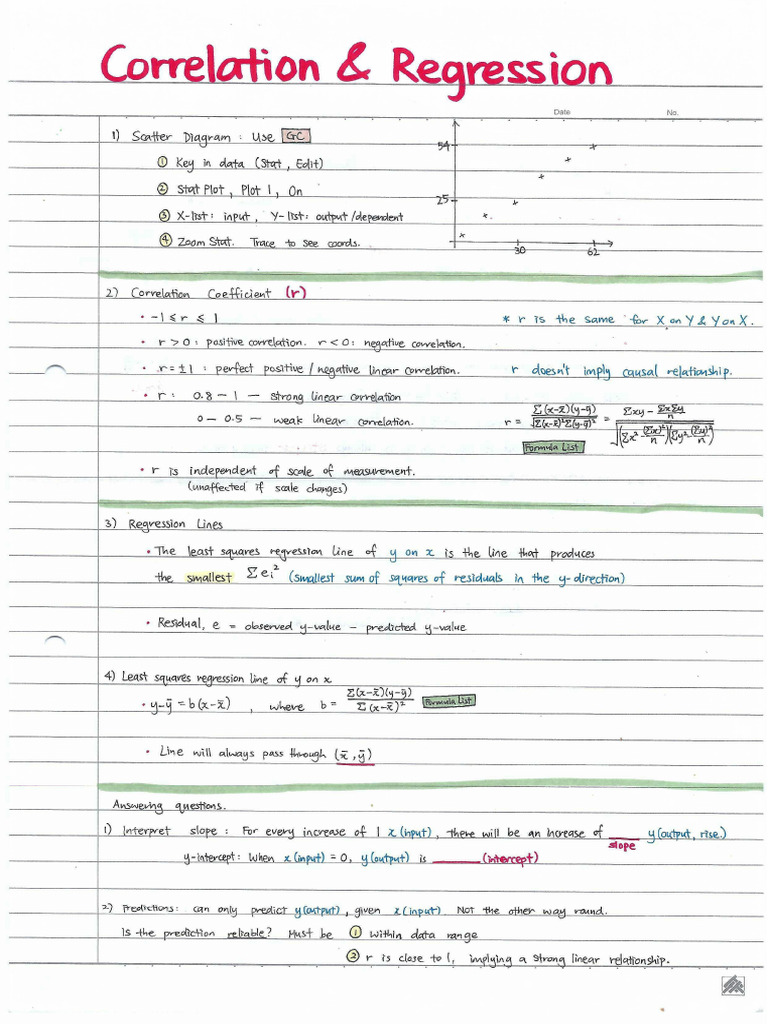 Correlation & Regression
Date No.
1) Scatter Diagram : Use GC
① Key in data (Stat, Edit)
② Stat Plot, Plot 1, On
③ X-list: input, Y-list: output/dependent
④ Zoom Stat. Trace to see coords.
54
25
30 62
2) Correlation Coefficient (r)
• -1 ≤ r ≤ 1 * r is the same for X on Y & Y on X.
• r > 0 : positive correlation. r < 0 : negative correlation.
• r = ±1 : perfect positive / negative linear correlation. r doesn't imply causal relationship.
• r : 0.8 – 1 – strong linear correlation
0 – 0.5 – weak linear correlation. r = Σ(x-x̄)(y-ȳ) / √(Σ(x-x̄)²Σ(y-ȳ)²) = (Σxy - ΣxΣy/n) / √((Σx² - (Σx)²/n)(Σy² - (Σy)²/n))
Formula List
• r is independent of scale of measurement.
(unaffected if scale changes)
3) Regression Lines
• The least squares regression line of y on x is the line that produces
the smallest Σei² (smallest sum of squares of residuals in the y-direction)
• Residual, e = observed y-value – predicted y-value
4) Least squares regression line of y on x
• y-ȳ = b(x-x̄) , where b = Σ(x-x̄)(y-ȳ) / Σ(x-x̄)² Formula List
• Line will always pass through (x̄, ȳ)
Answering questions.
1) Interpret slope : For every increase of 1 x (input), there will be an increase of ____ y (output, rise.)
slope
y-intercept: When x (input) = 0, y (output) is ______ (intercept)
2) Predictions: can only predict y (output), given x (input). Not the other way round.
Is the prediction reliable? Must be ① within data range
② r is close to 1, implying a strong linear relationship.